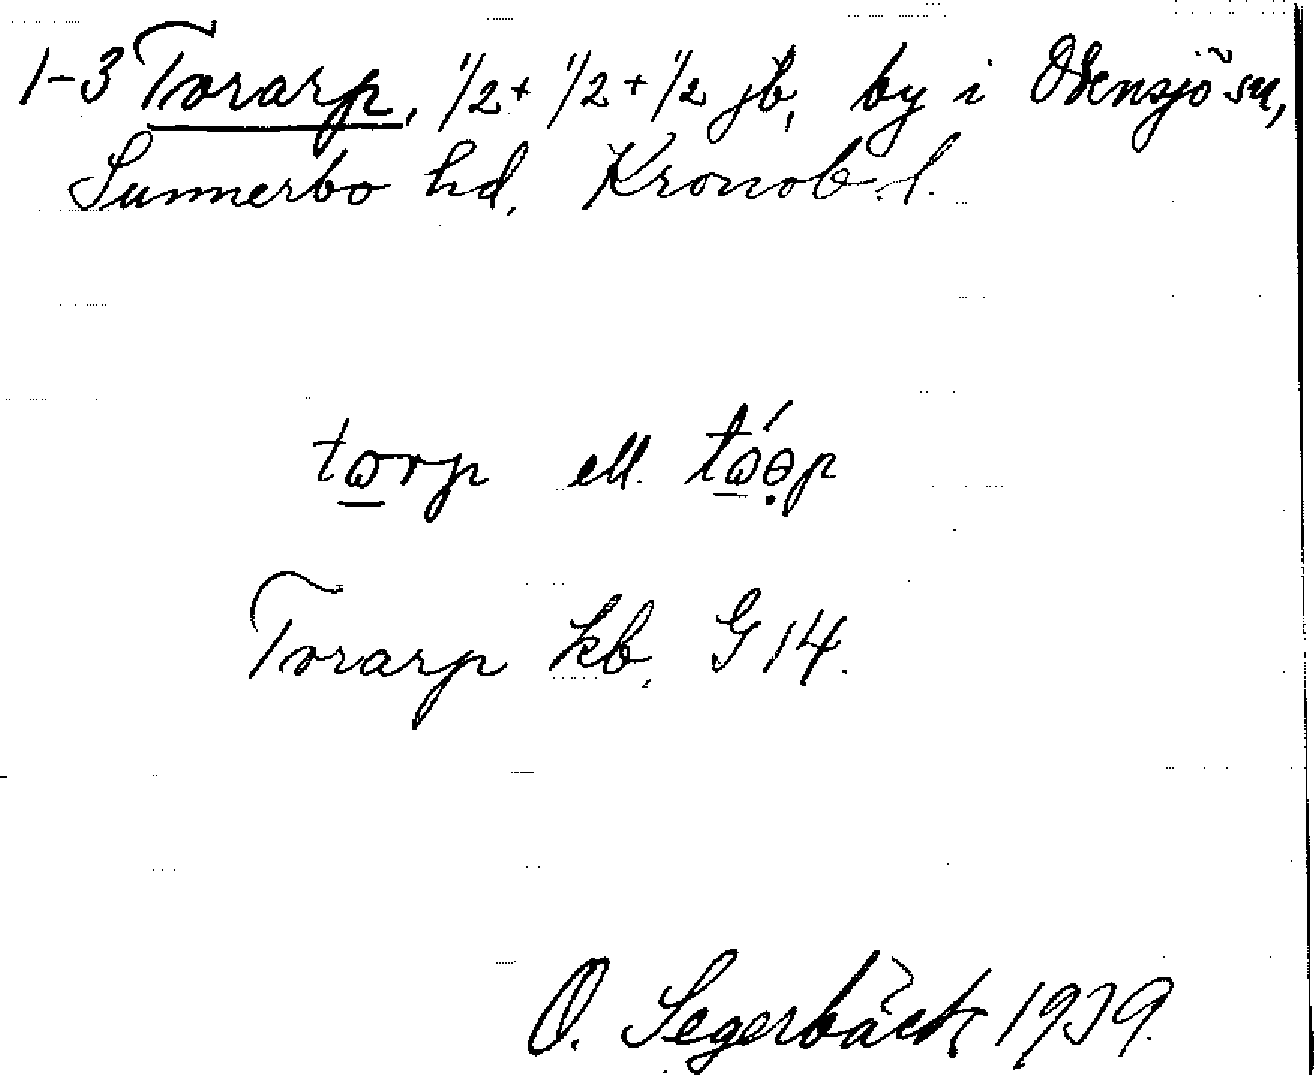 1-3 Torarp, 1/2 + 1/2 + 1/2 jb, by i Odensjö sn,
Sunnerbo hd, Kronob. l.
tɷrp ell. tɷ́ɵp
Torarp kb, G 14.
O. Segerbäck 1939.